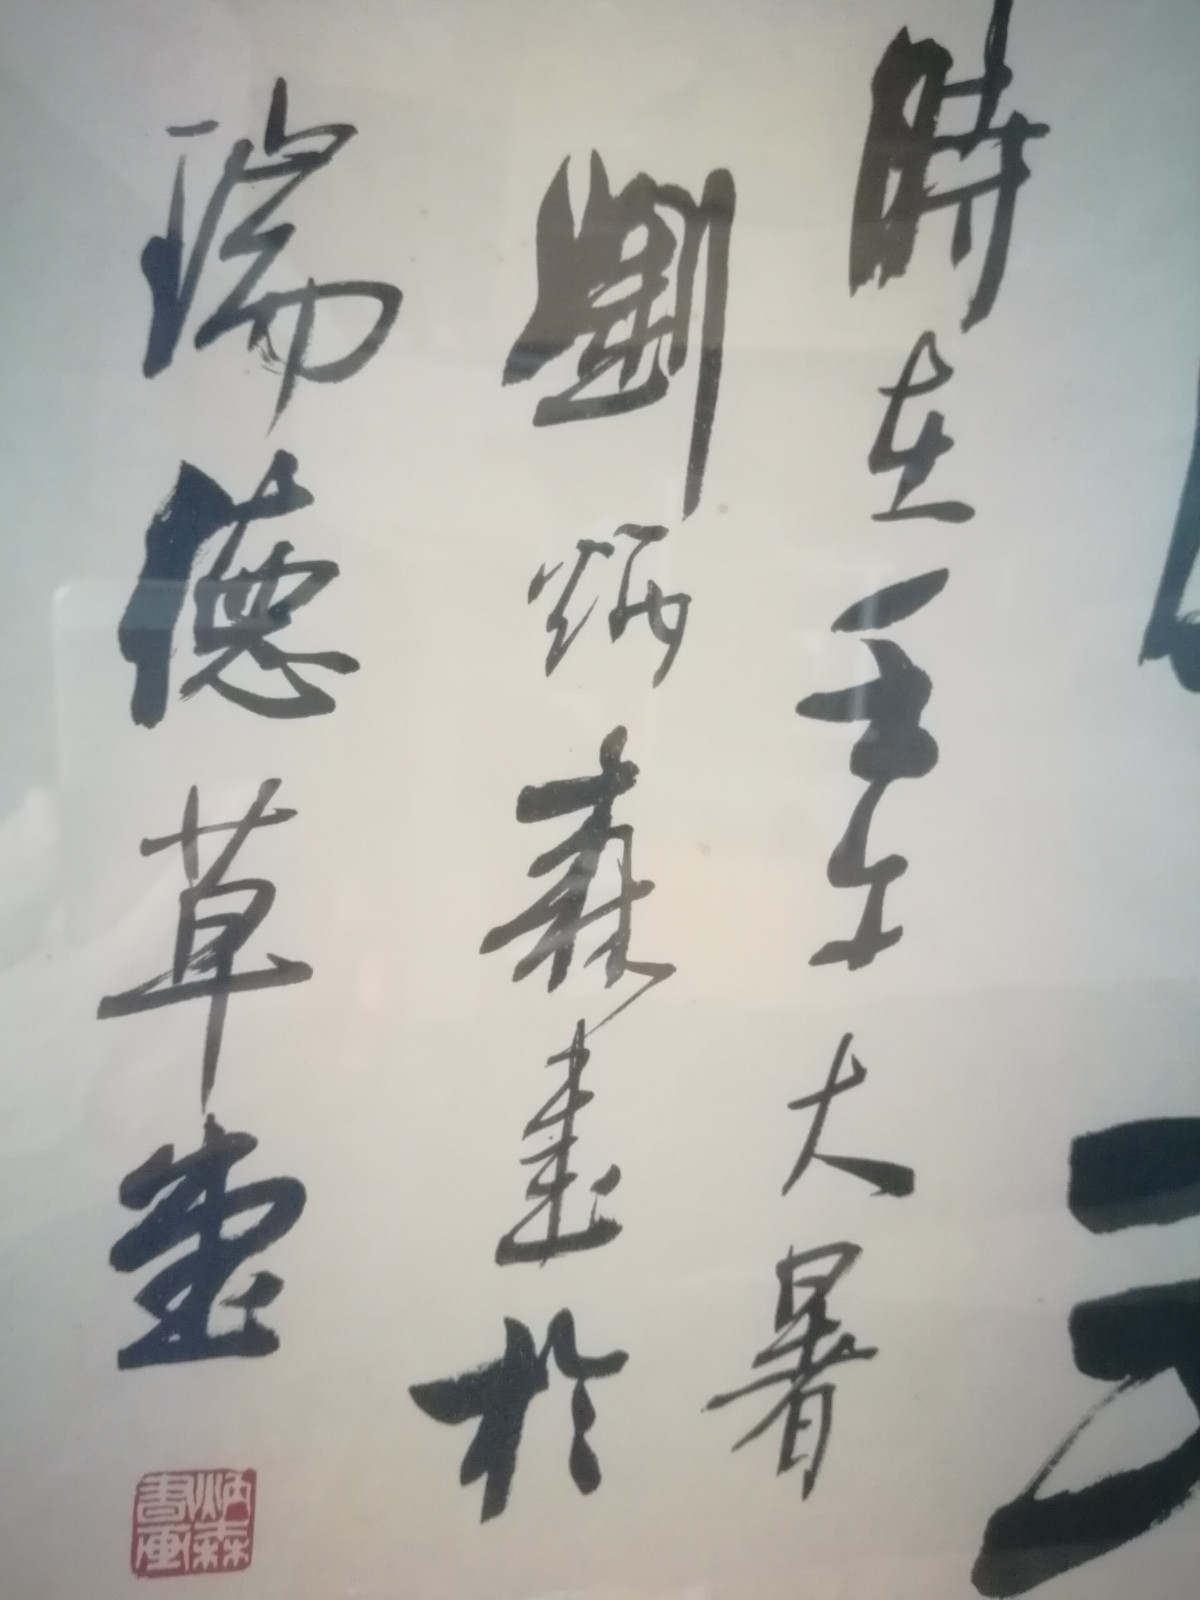 時在壬午大暑
劉炳森書於
瑞德草堂
炳森
書画